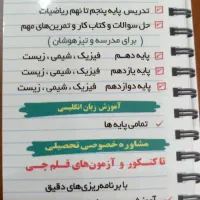 تدریس پایه پنجم تا نهم ریاضیات
حل سوالات و کتاب کار و تمرین‌های مهم
( برای مدرسه و تیزهوشان )
پایه دهـم فیزیک ، شیمی ، زیست
پایه یازدهم فیزیک ، شیمی ، زیست
پایه دوازدهم فیزیک ، شیمی ، زیست
آموزش زبان انگلیسی
تمامی پایه ها
مشاوره خصوصی تحصیلی
تا کنکور و آزمون‌های قلم چی
با برنامه‌ریزی‌های دقیق